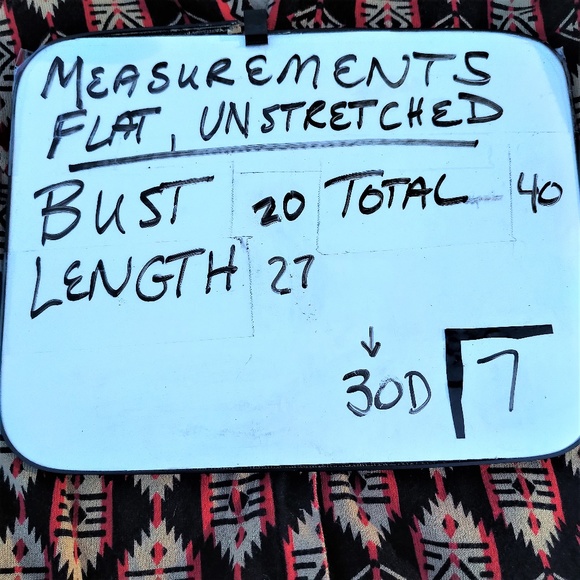 MEASUREMENTS
FLAT, UNSTRETCHED
BUST 20 TOTAL 40
LENGTH 27
↓
30D 7